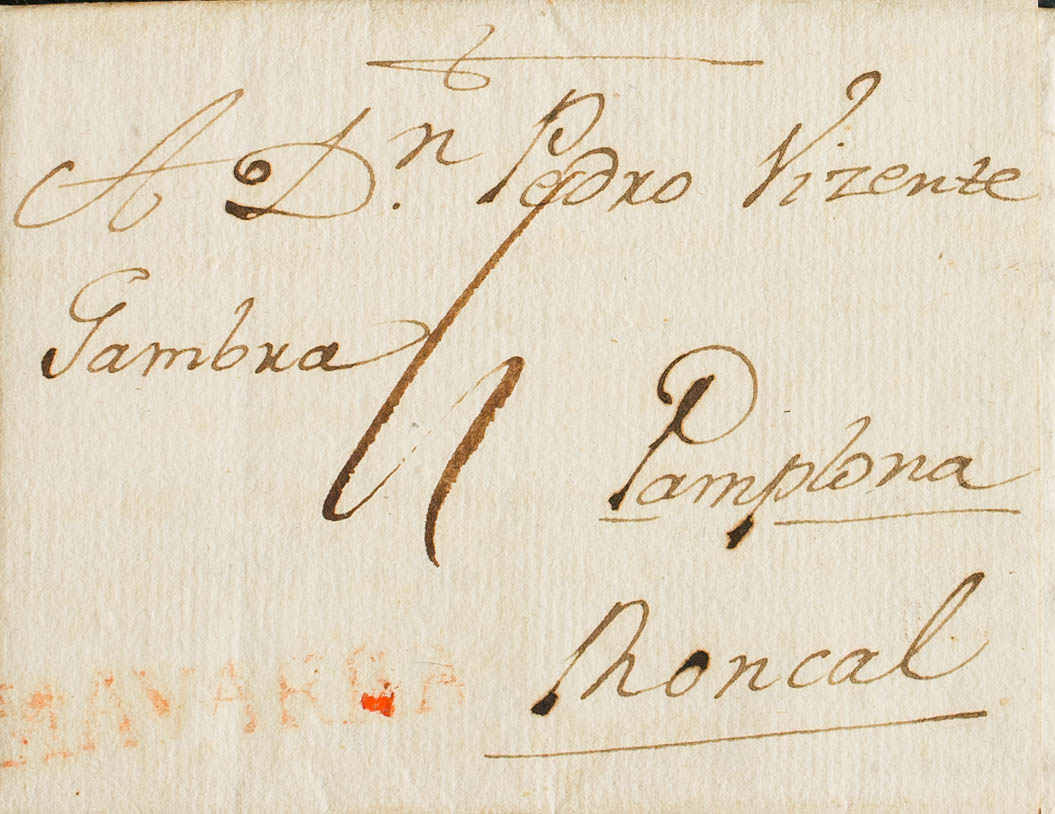 A Dⁿ. Pedro Vizente
Gambra
Pamplona
Roncal
NAVARRA